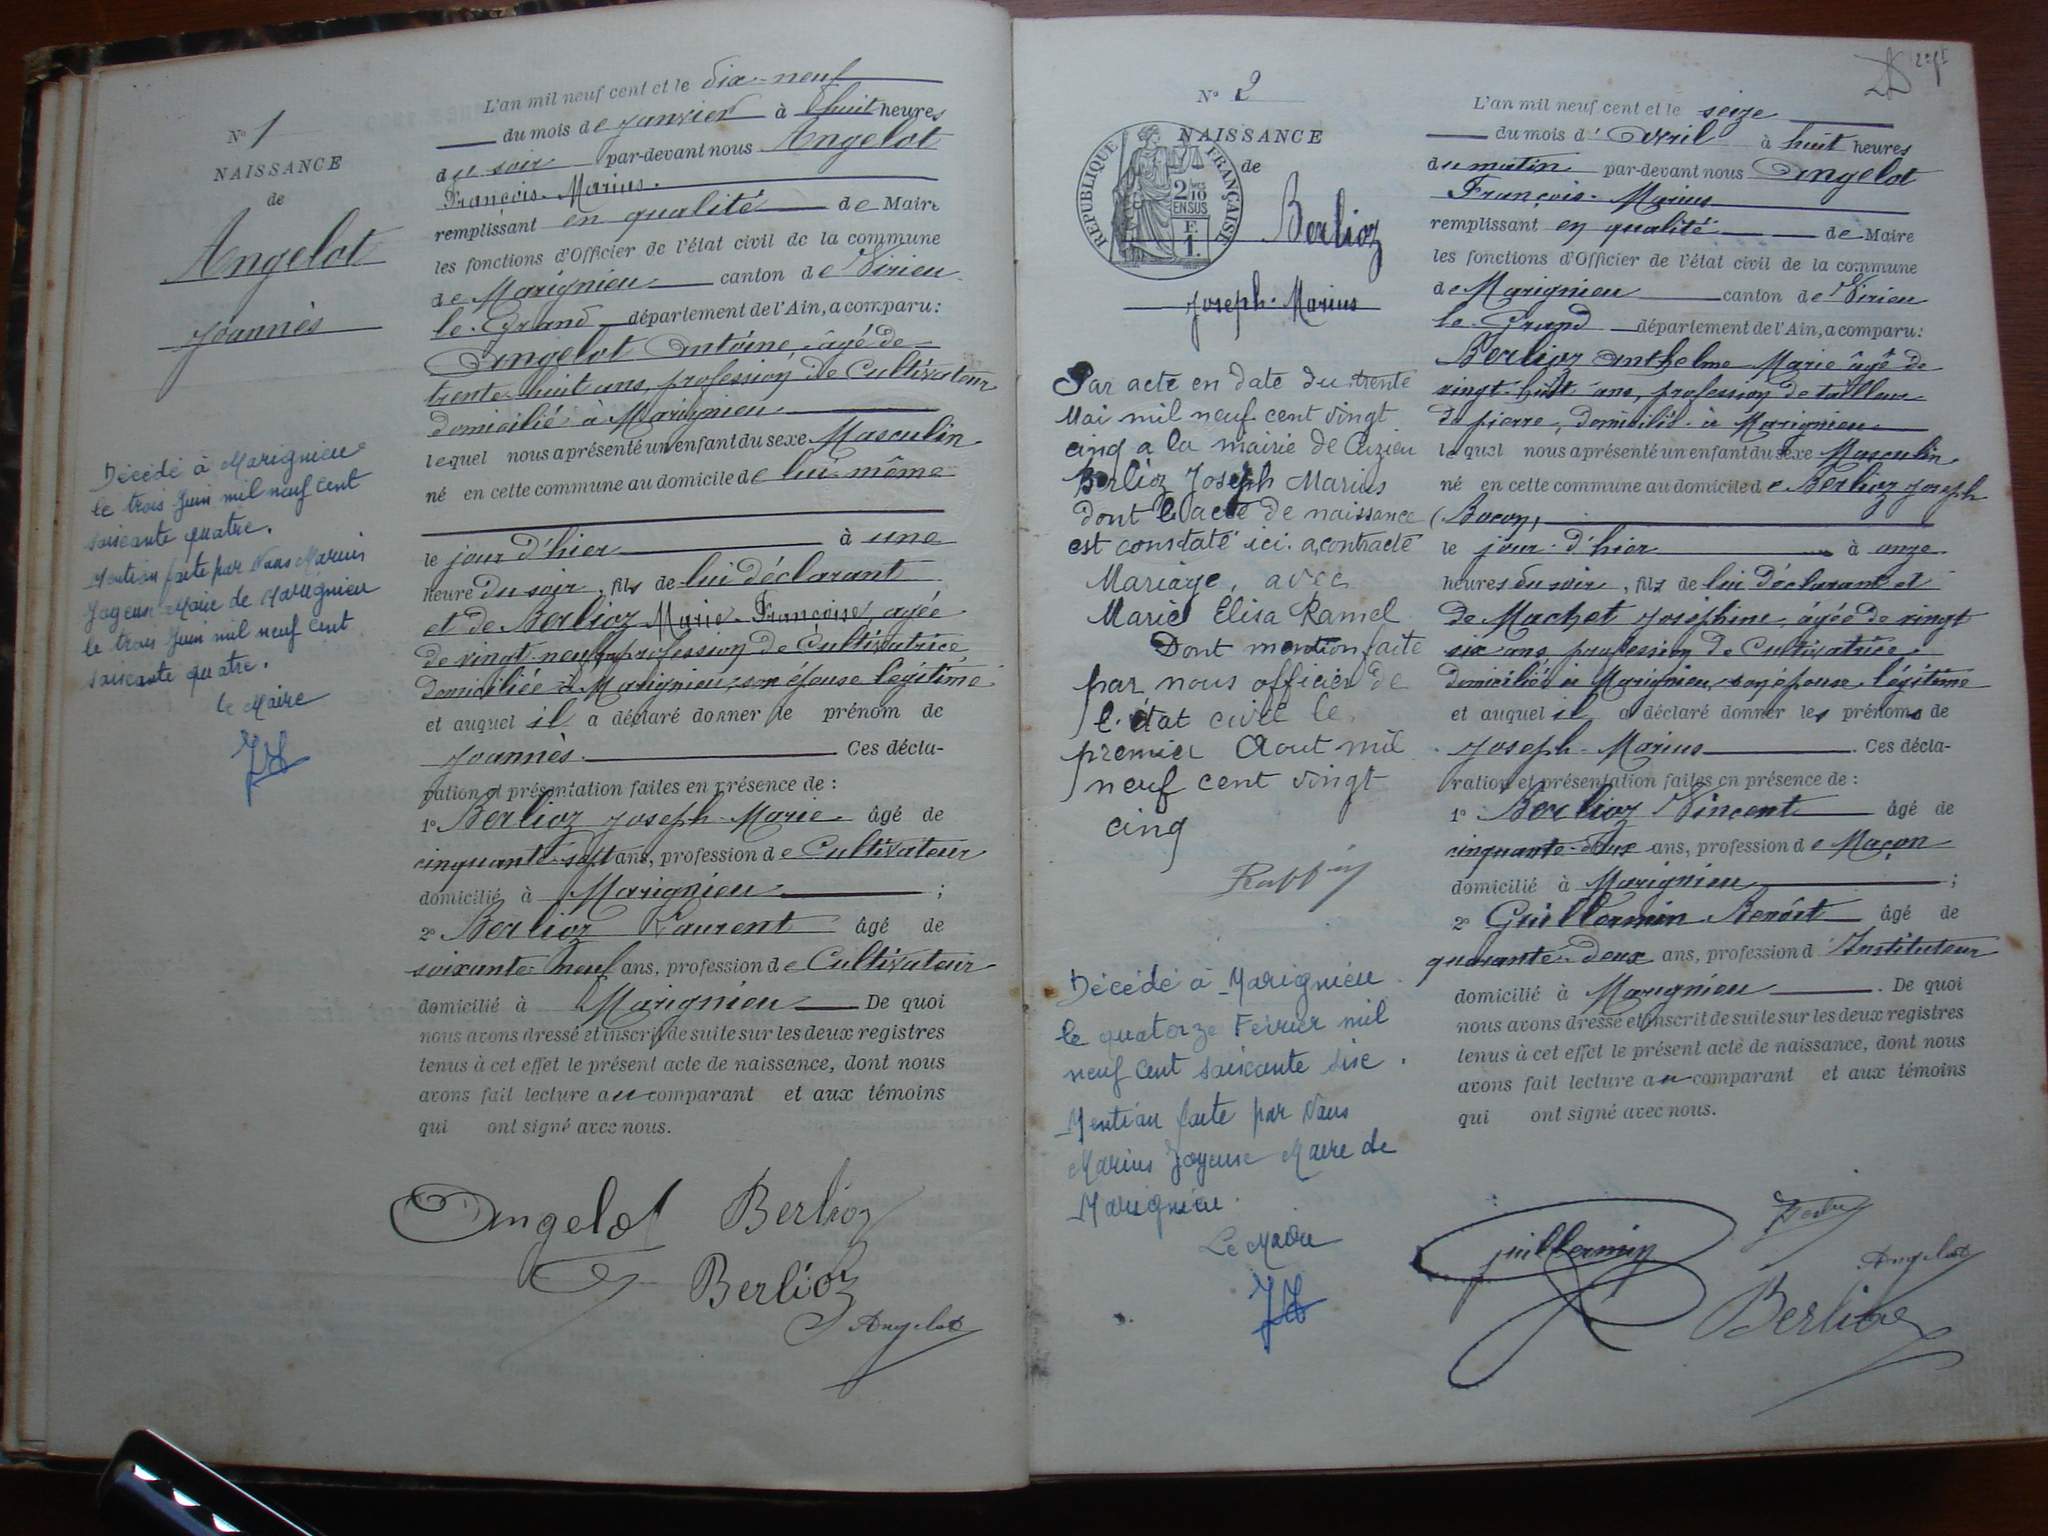 N° 1
NAISSANCE
de
Angelot
Joannès
Décédé à Marignieu
le trois Juin mil neuf cent
soixante quatre.
Mention faite par Nous Marius
Joyeux Maire de Marignieu
le trois Juin mil neuf cent
soixante quatre.
le Maire
L'an mil neuf cent et le dix-neuf
du mois de Janvier à huit heures
du soir par-devant nous Angelot
François-Marius.
remplissant en qualité de Maire
les fonctions d'Officier de l'état civil de la commune
de Marignieu canton de Virieu
le-Grand département de l'Ain, a comparu:
Angelot Antoine âgé de
trente-huit ans, profession de Cultivateur
domicilié à Marignieu
lequel nous a présenté un enfant du sexe Masculin
né en cette commune au domicile de lui-même
le jour d'hier à une
heure du soir, fils de lui déclarant
et de Berlioz Marie-Françoise, agée
de vingt-neuf profession de Cultivatrice
domiciliée à Marignieu, son épouse légitime
et auquel il a déclaré donner le prénom de
Joannès. Ces décla-
ration et présentation faites en présence de:
1° Berlioz Joseph-Marie âgé de
cinquante-sept ans, profession de Cultivateur
domicilié à Marignieu ;
2° Berlioz Laurent âgé de
soixante neuf ans, profession de Cultivateur
domicilié à Marignieu De quoi
nous avons dressé et inscrit de suite sur les deux registres
tenus à cet effet le présent acte de naissance, dont nous
avons fait lecture au comparant et aux témoins
qui ont signé avec nous.
Angelot Berlioz
Berlioz
Angelot
N° 2
NAISSANCE
de
REPUBLIQUE FRANÇAISE
2/10
EN SUS
F.
1.
Berlioz
Joseph-Marius
Par acte en date du trente
Mai mil neuf cent vingt
cinq a la mairie de Cuzieu
Berlioz Joseph Marius
dont l'acte de naissance
est constaté ici a contracté
Mariage, avec
Marie Elisa Ramel
Dont mention faite
par nous officier de
l'état civil le
premier Aout mil
neuf cent vingt
cinq
Décédé à Marignieu
le quatorze Février mil
neuf cent soixante six.
Mention faite par Nous
Marius Joyeux Maire de
Marignieu.
Le Maire
L'an mil neuf cent et le seize
du mois d'Avril à huit heures
du matin par-devant nous Angelot
François-Marius
remplissant en qualité de Maire
les fonctions d'Officier de l'état civil de la commune
de Marignieu canton de Virieu
le-Grand département de l'Ain, a comparu:
Berlioz Anthelme-Marie âgé de
vingt-huit ans, profession de tailleur
de pierre, domicilié à Marignieu
lequel nous a présenté un enfant du sexe Masculin
né en cette commune au domicile de Berlioz Joseph
le jour d'hier à onze
heures du soir, fils de lui déclarant et
de Machet Joséphine, âgée de vingt
six ans profession de Cultivatrice
domiciliée à Marignieu, son épouse légitime
et auquel il a déclaré donner les prénoms de
Joseph-Marius . Ces décla-
ration et présentation faites en présence de:
1° Berlioz Vincent âgé de
cinquante-deux ans, profession de Maçon
domicilié à Marignieu ;
2° Guillermin Benoît âgé de
quarante-deux ans, profession d'Instituteur
domicilié à Marignieu . De quoi
nous avons dressé et inscrit de suite sur les deux registres
tenus à cet effet le présent acte de naissance, dont nous
avons fait lecture au comparant et aux témoins
qui ont signé avec nous.
Guillermin
Angelot
Berlioz